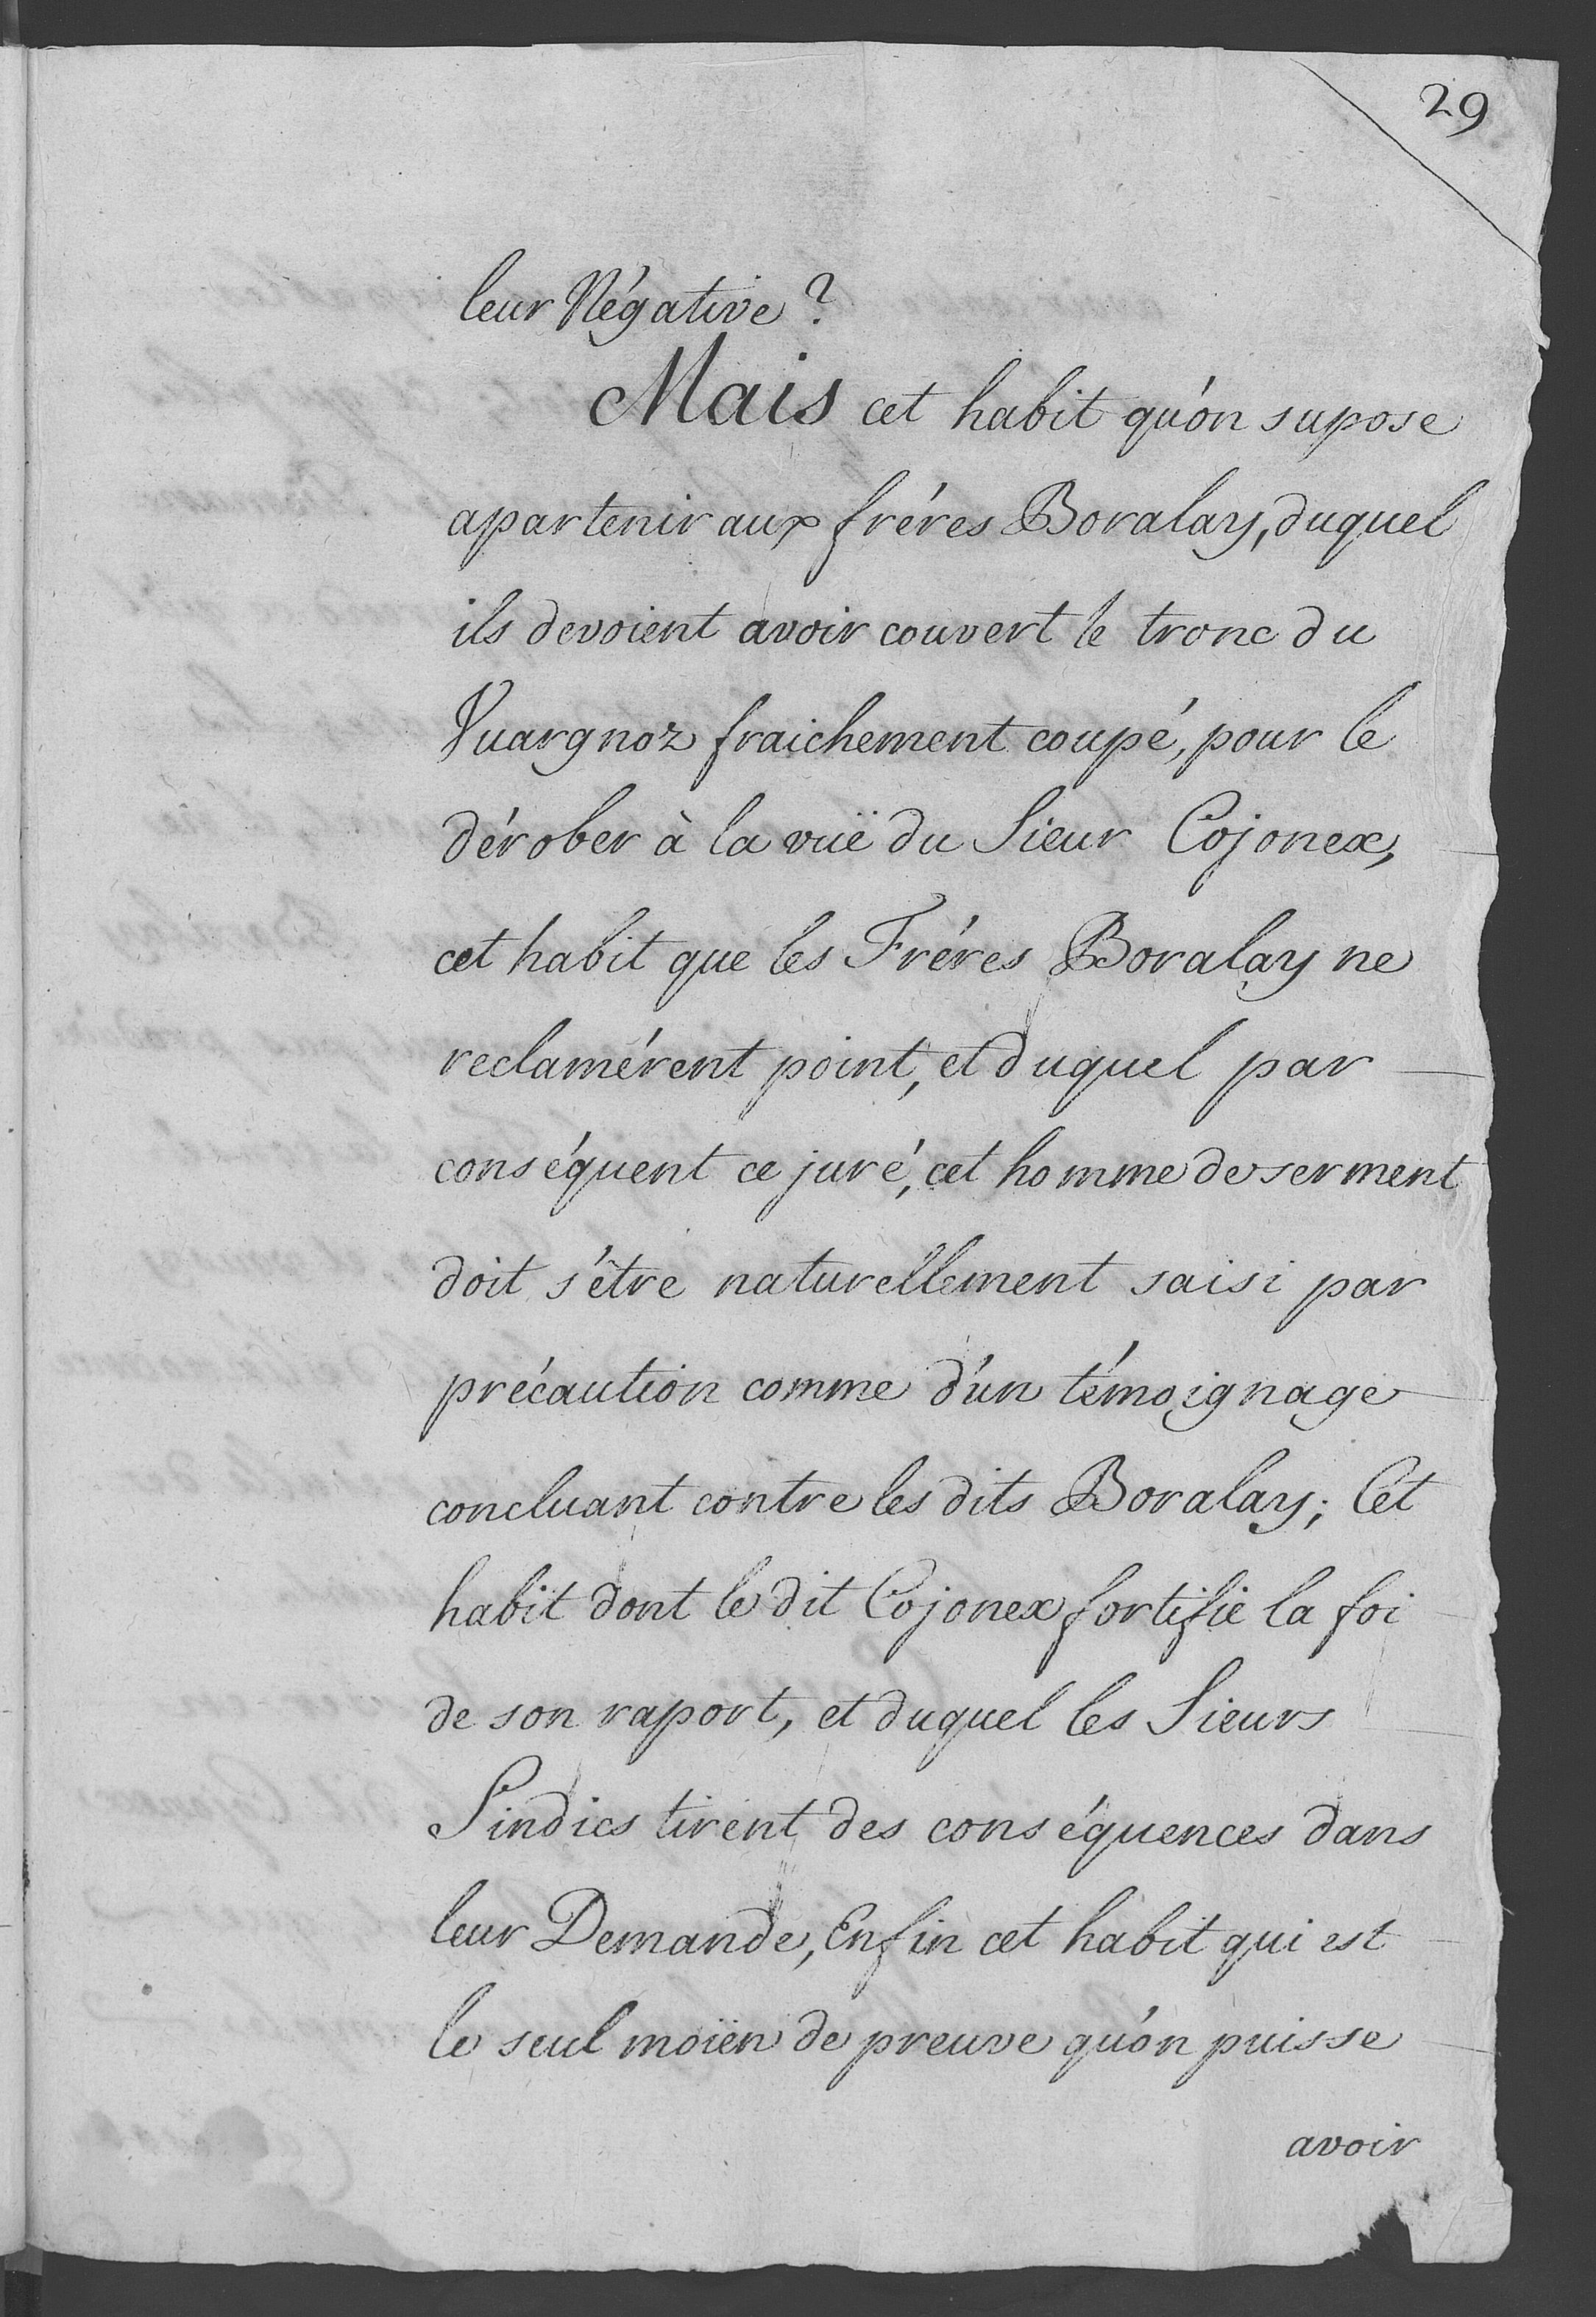 29
leur Négative?
Mais cet habit qu'on supose
apartenir aux fréres Boralay, duquel
ils devoient avoir couvert le tronc du
Vuargnoz fraichement coupé, pour le
dérober à la vuë du Sieur Cojonex,
cet habit que les Fréres Boralay ne
reclamérent point, et duquel par
conséquent ce juré, cet homme de serment
doit s'être naturellement saisi par
précaution comme d'un témoignage
concluant contre les dits Boralay; Cet
habit dont le dit Cojonex fortifie la foi
de son raport, et duquel les Sieurs
Sindics tirent des conséquences dans
leur Demande, Enfin cet habit qui est
le seul moïen de preuve qu'on puisse
avoir